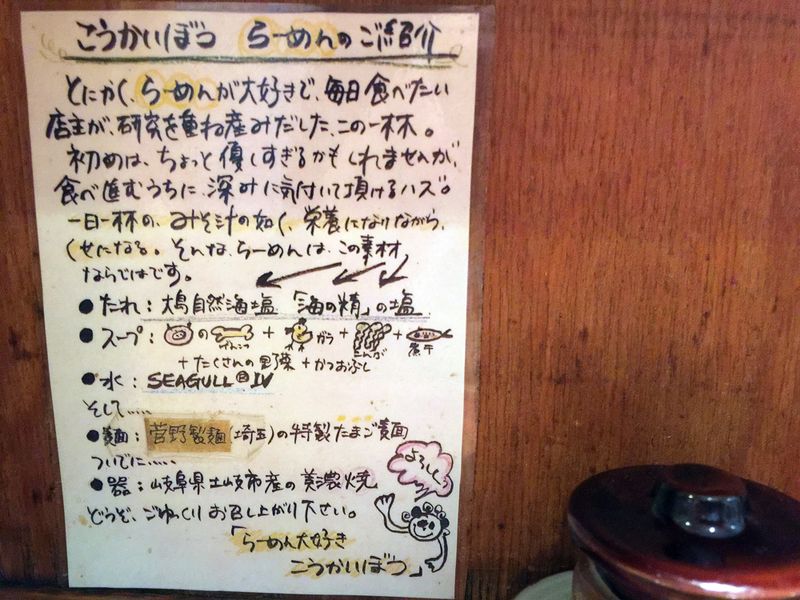 こうかいぼう らーめんのご紹介
とにかく、らーめんが大好きで、毎日食べたい
店主が、研究を重ね産みだした、この一杯。
初めは、ちょっと優しすぎるかもしれませんが、
食べ進むうちに深みに気付いて頂けるハズ。
一日一杯の、みそ汁の如く、栄養になりながら、
くせになる。そんな、らーめんは、この素材
ならではです。
●たれ:大島自然海塩「海の精」の塩
●スープ:の + ガラ + + 
げんこつ こんぶ 煮干
+たくさんの野菜+かつおぶし
●水:SEAGULL®IV
そして‥‥
●麺:菅野製麺(埼玉)の特製たまご麺
ついでに‥‥
●器:岐阜県土岐市産の美濃焼
よろしく
どうぞ、ごゆっくりお召し上がり下さい。
「らーめん大好き
こうかいぼう」